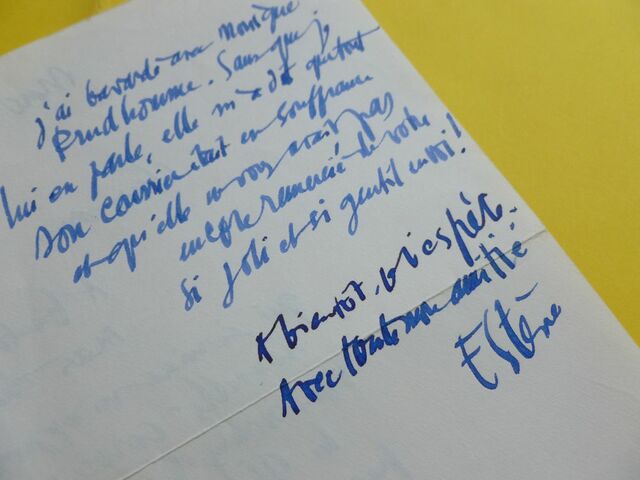 j'ai bavardé avec Monique
Prudhomme. Sans que j
lui en parle, elle m'a dit que tout
son courrier était en souffrance
et qu'elle ne vous avait pas
encore remercié de votre
si joli et si gentil envoi!
A bientôt, j'espère.
Avec toute mon amitié
Estève